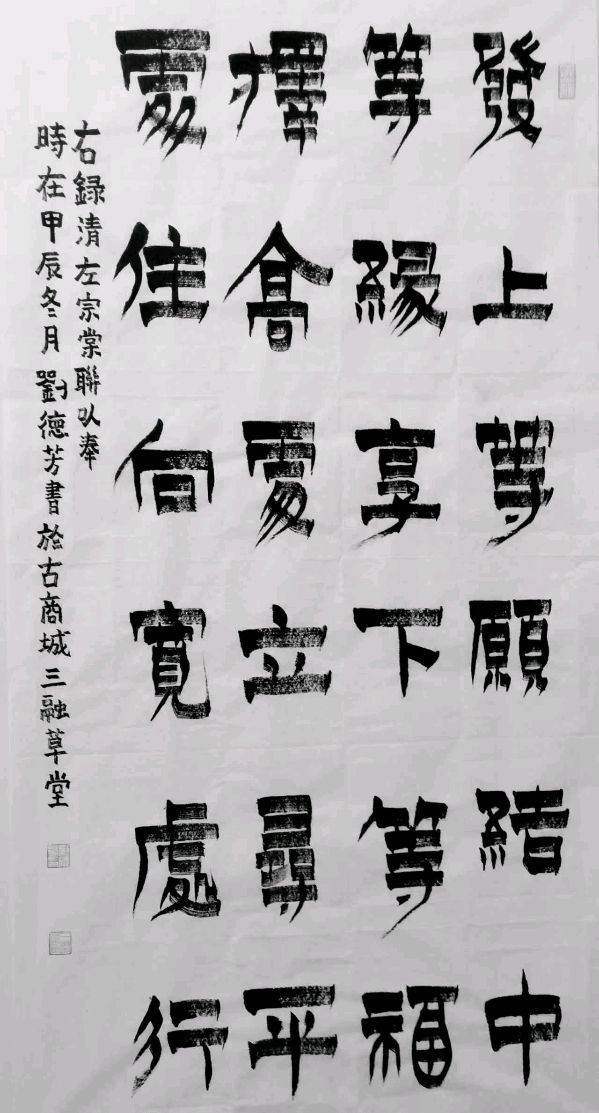 發上等願結中
等緣享下等福
擇高處立尋平
處住向寬處行
右録清左宗棠聯以奉
時在甲辰冬月劉德芳書於古商城三融草堂